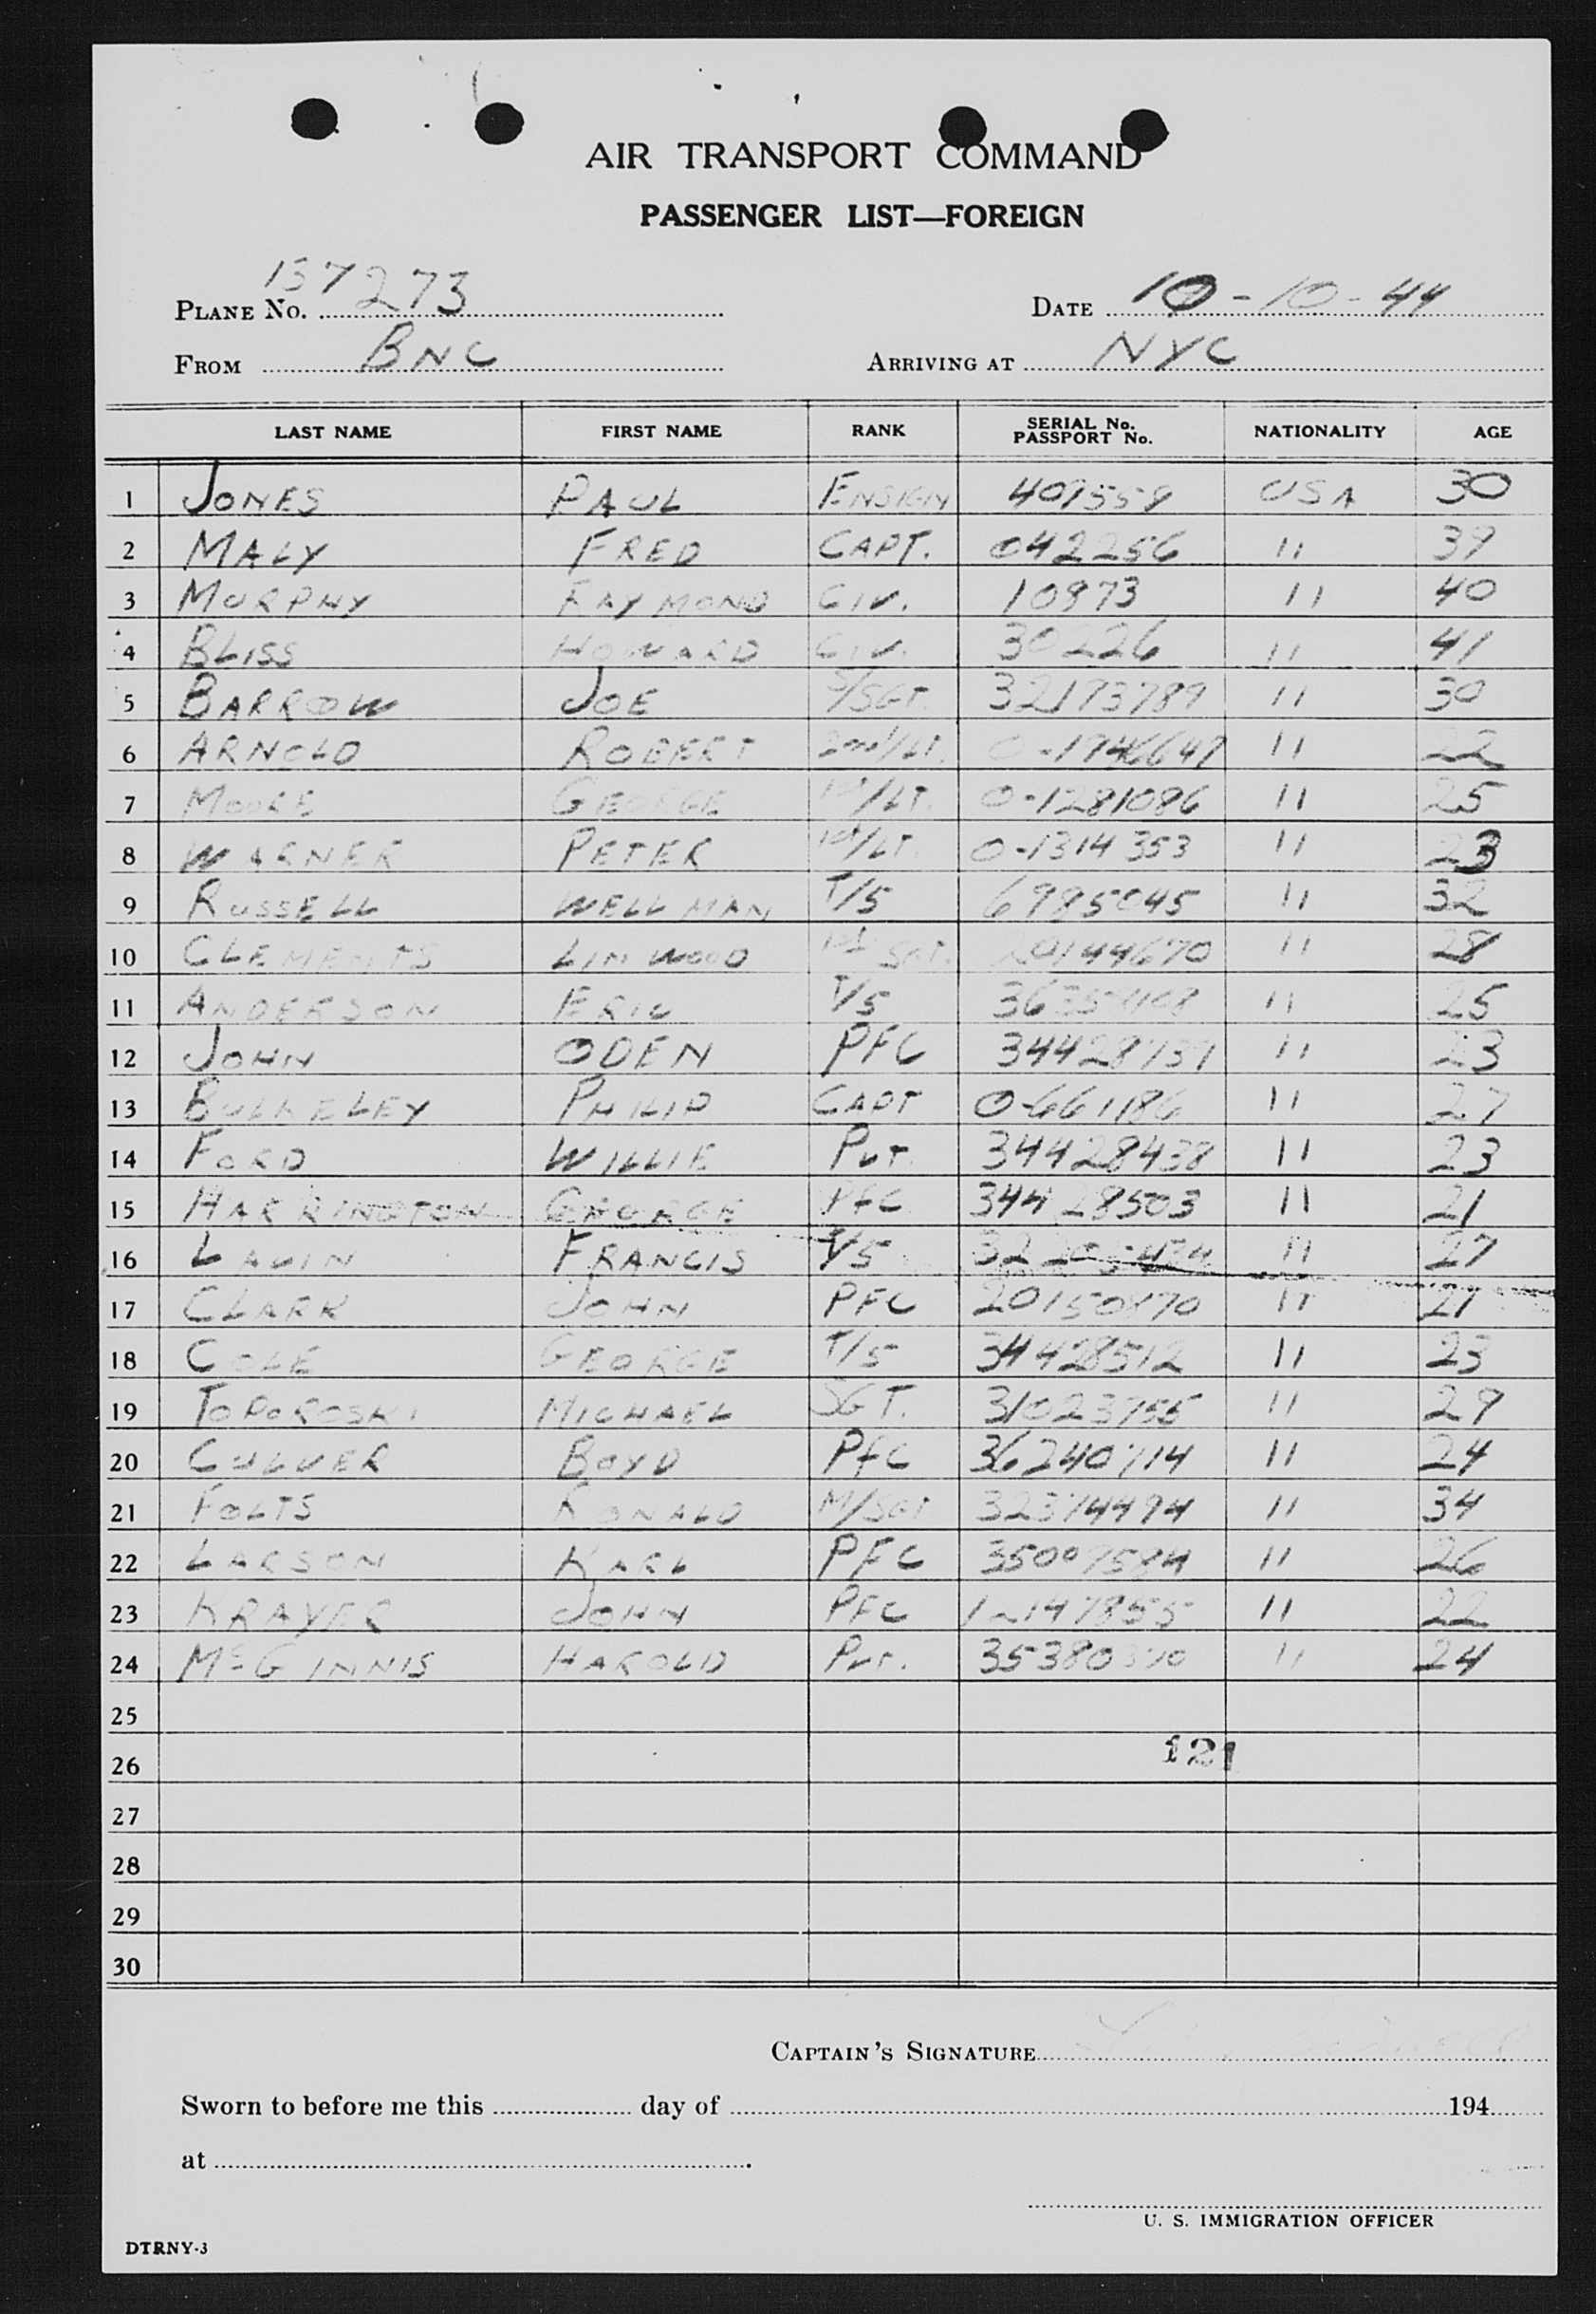 AIR TRANSPORT COMMAND
PASSENGER LIST—FOREIGN
PLANE No. 157273 DATE 10-10-44
FROM BNC ARRIVING AT NYC
LAST NAME FIRST NAME RANK SERIAL No. PASSPORT No. NATIONALITY AGE
1 JONES PAUL ENSIGN USA 30
2 MALY FRED CAPT. 042256 " 39
3 MURPHY RAYMOND CIV. 10973 " 40
4 BLISS HOWARD CIV. 30226 " 41
5 BARROW JOE S/SGT. 32193789 " 30
6 ARNOLD ROBERT 2nd/LT. " 22
7 MOORE GEORGE 1st/LT. O-1281086 " 25
8 WARNER PETER 1st/LT. O-1314353 " 23
9 RUSSELL WELLMAN T/5 6985045 " 32
10 CLEMENTS LINWOOD 1st SGT. 20144670 " 28
11 ANDERSON ERIC T/5 " 25
12 JOHN ODEN PFC " 23
13 BULKELEY PHILIP CAPT O-661186 " 27
14 FORD WILLIE PVT. 34428438 " 23
15 HARRINGTON GEORGE PFC 34428503 " 21
16 LAVIN FRANCIS T/5 " 27
17 CLARK JOHN PFC " 21
18 COLE GEORGE T/5 34428512 " 23
19 TOPOROSKI MICHAEL SGT. 31023755 " 29
20 CULVER BOYD PFC 36240714 " 24
21 FOLTS RONALD M/SGT 32374494 " 34
22 LARSON KARL PFC 35007584 " 26
23 KRAYER JOHN PFC 12147855 " 22
24 McGINNIS HAROLD PVT. " 24
25
26 121
27
28
29
30
CAPTAIN'S SIGNATURE
Sworn to before me this day of 194
at
U. S. IMMIGRATION OFFICER
DTRNY-3